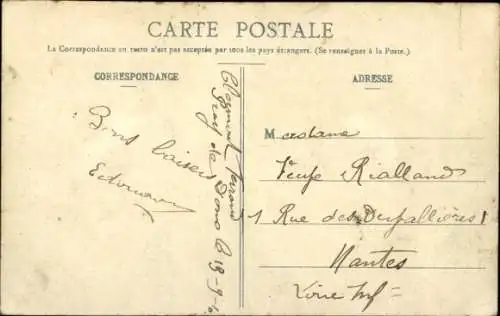 CARTE POSTALE
La Correspondance au recto n'est pas acceptée par tous les pays étrangers. (Se renseigner à la Poste.)
CORRESPONDANCE
ADRESSE
Bons baisers
Edouard
Clermont Ferrand
Puy de Dome le 18-9-
Madame
Veuve Rialland
1 Rue des
Nantes
Loire Inf=